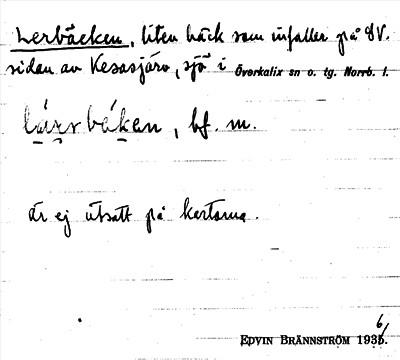 Lerbäcken, liten bäck som infaller på SV.
sidan av Kesasjärv, sjö i Överkalix sn o. tg. Norrb. l.
lärsbäken, bf. m.
är ej utsatt på kartorna.
EDVIN BRÄNNSTRÖM 1936.